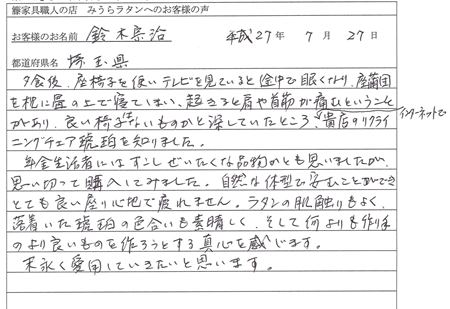 籐家具職人の店　みうらラタンへのお客様の声
お客様のお名前　鈴木宗治　平成27年　7月　27日
都道府県名　埼玉県
夕食後、座椅子を使いテレビを見ていると途中で眠くなり、座蒲団
を枕に畳の上で寝てしまい、起きると肩や首筋が痛むということ
があり、良い椅子はないものかと探していたところ、貴店のリクライ
インターネットで
ニングチェア琥珀を知りました。
年金生活者にはすこしぜいたくな品物かとも思いましたが、
思い切って購入してみました。自然な体型で安むことができ
とても良い座り心地で疲れません。ラタンの肌触りもよく、
落着いた琥珀の色合いも素晴しく、そして何よりも作り手
のより良いものを作ろうとする真心を感じます。
末永く愛用していきたいと思います。